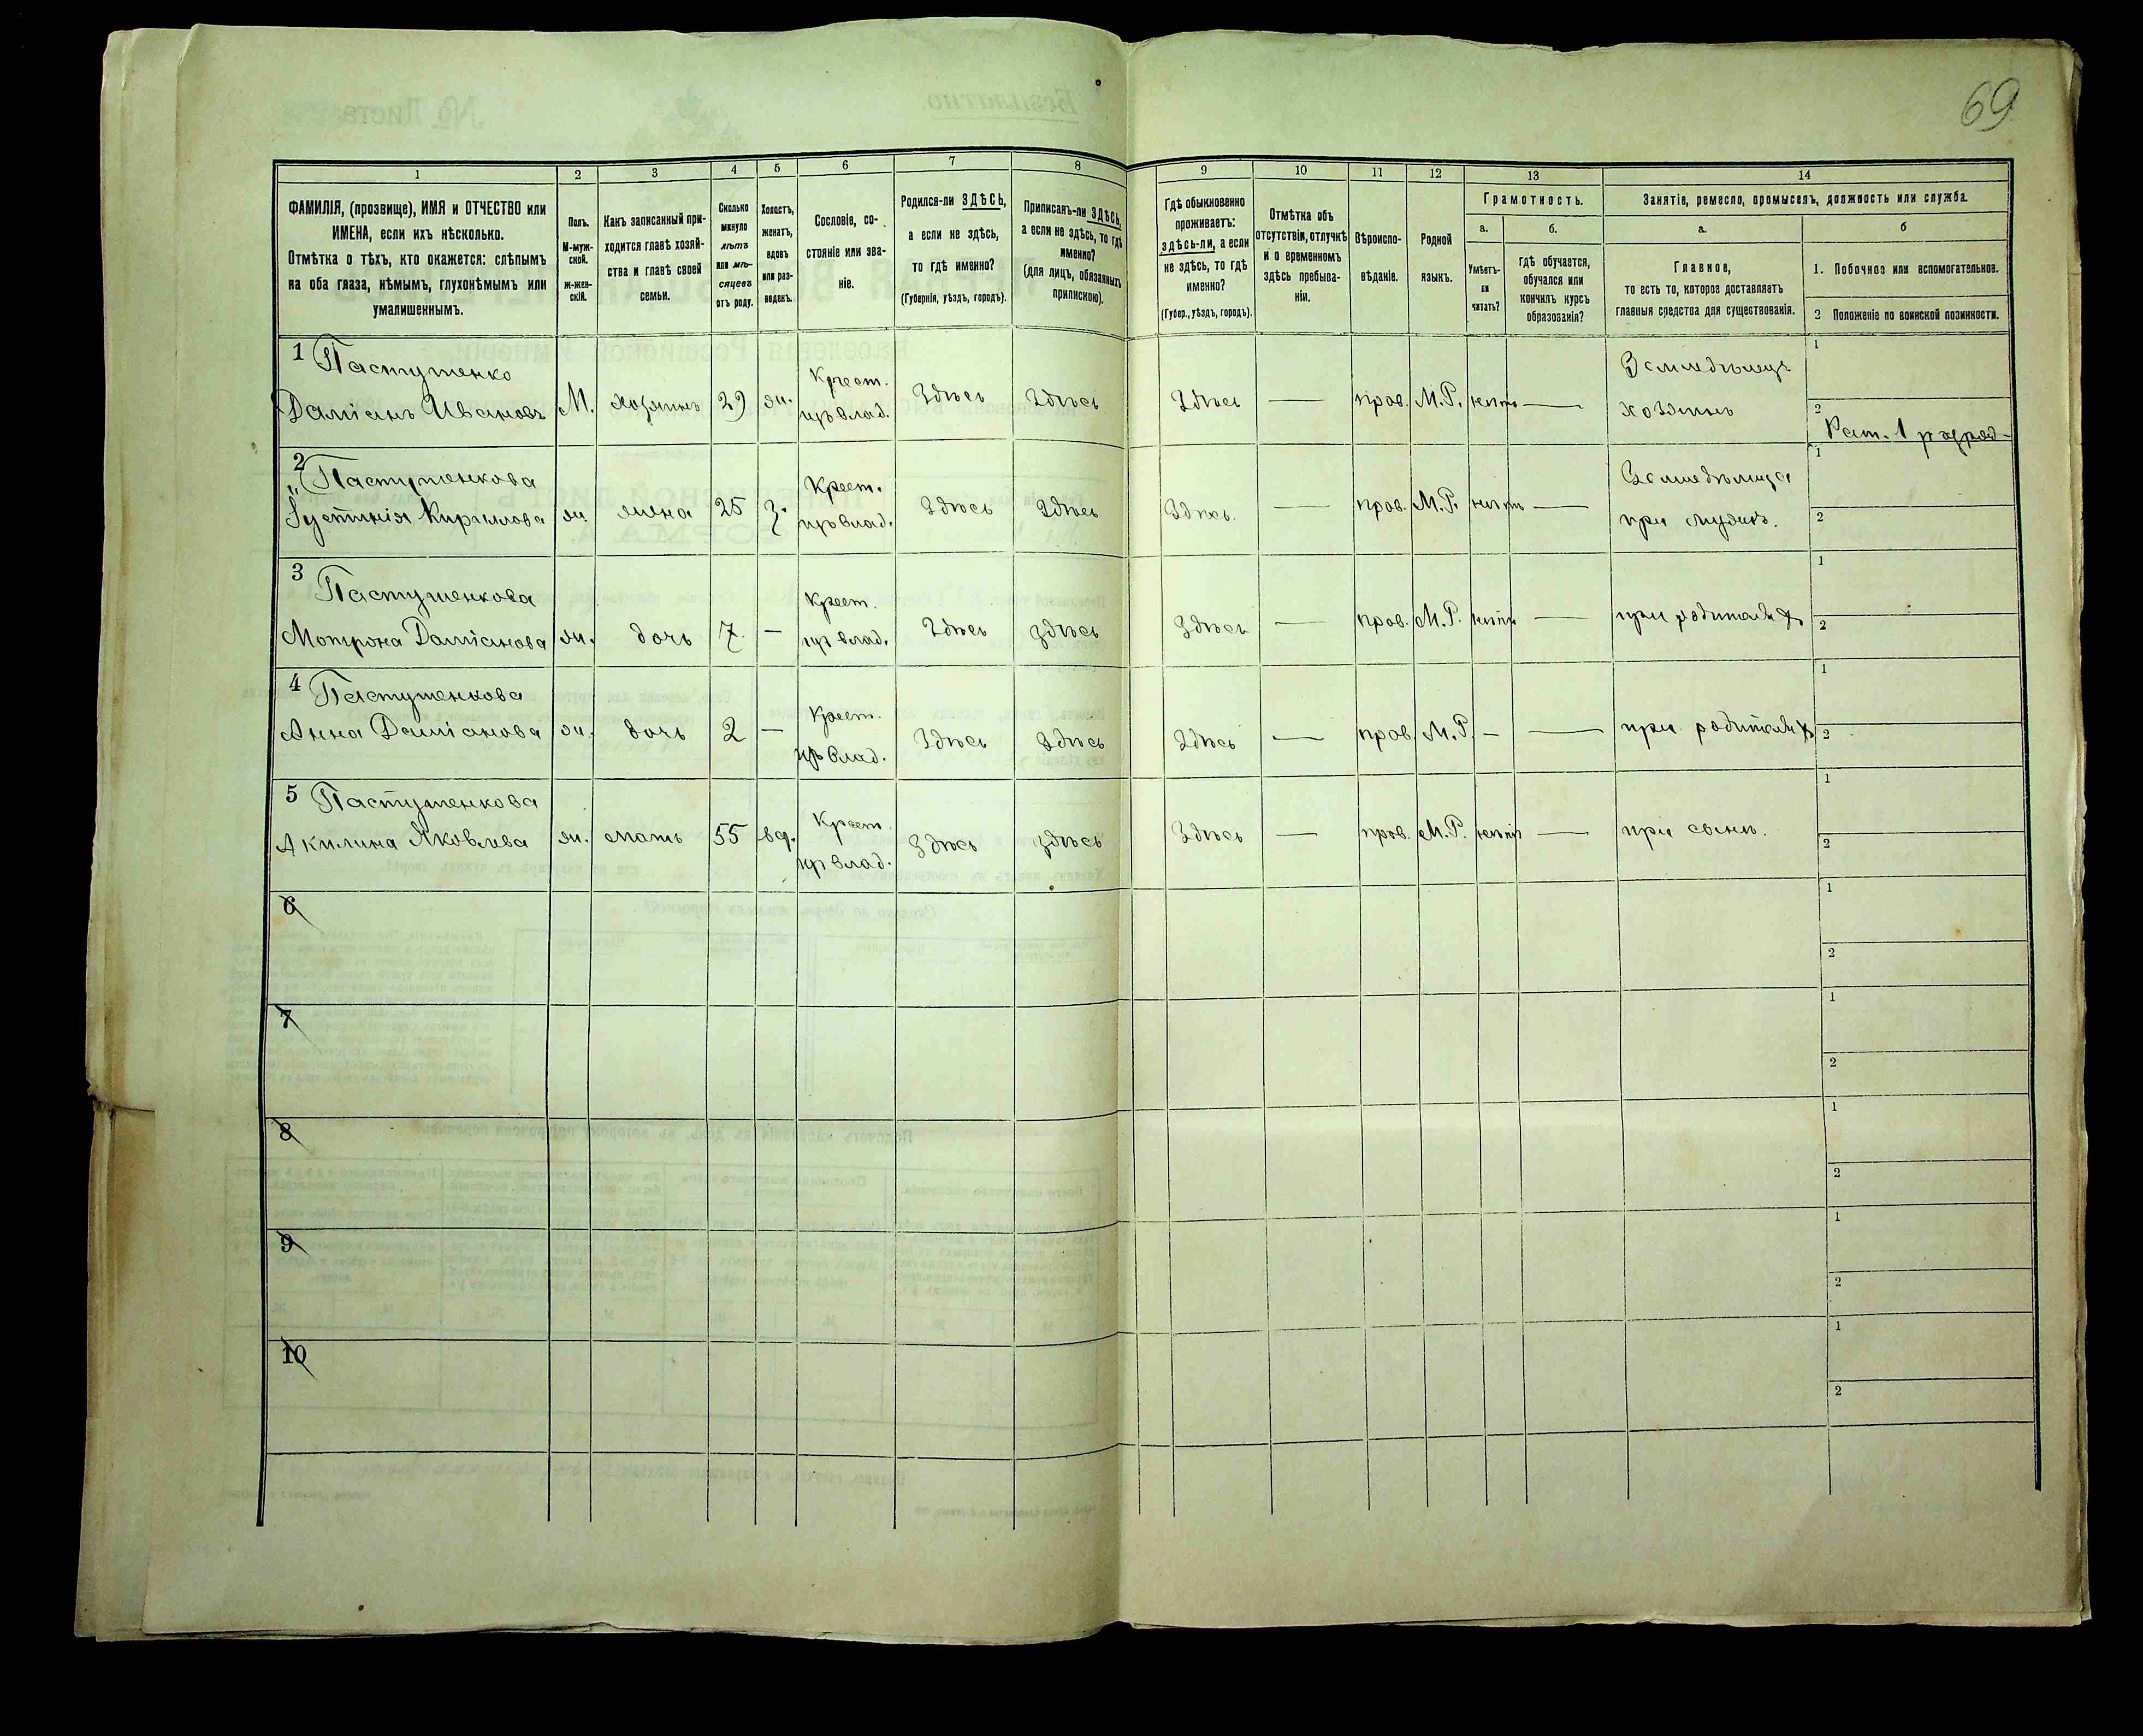 69
1 2 3 4 5 6 7 8 9 10 11 12 13 14
ФАМИЛІЯ, (прозвище), ИМЯ и ОТЧЕСТВО или
ИМЕНА, если ихъ нѣсколько.
Отмѣтка о тѣхъ, кто окажется: слѣпымъ
на оба глаза, нѣмымъ, глухонѣмымъ или
умалишеннымъ.
Полъ.
М-муж-
ской.
ж-жен-
скій.
Какъ записанный при-
ходится главѣ хозяй-
ства и главѣ своей
семьи.
Сколько
минуло
лѣтъ
или мѣ-
сяцевъ
отъ роду.
Холостъ,
женатъ,
вдовъ
или раз-
веденъ.
Сословіе, со-
стояніе или зва-
ніе.
Родился-ли ЗДѢСЬ,
а если не здѣсь,
то гдѣ именно?
(Губернія, уѣздъ, городъ).
Приписанъ-ли ЗДѢСЬ,
а если не здѣсь, то гдѣ
именно?
(для лицъ, обязанныхъ
припискою).
Гдѣ обыкновенно
проживаетъ:
здѣсь-ли, а если
не здѣсь, то гдѣ
именно?
(Губер., уѣздъ, городъ).
Отмѣтка объ
отсутствіи, отлучкѣ
и о временномъ
здѣсь пребыва-
ніи.
Вѣроиспо-
вѣданіе.
Родной
языкъ.
Грамотность.
а.
Умѣетъ-
ли
читать?
б.
гдѣ обучается,
обучался или
кончилъ курсъ
образованія?
Занятіе, ремесло, промыселъ, должность или служба.
а.
Главное,
то есть то, которое доставляетъ
главныя средства для существованія.
б
1. Побочное или вспомогательное.
2 Положеніе по воинской повинности.
1 Пастушенко
Даміанъ Ивановъ М. хозяинъ 29 ж. Крест. изъ влад. Здѣсь Здѣсь Здѣсь — прав. М.Р. нѣтъ — Земледѣлецъ хозяинъ
1
2 Рат. 1 разряд
2 Пастушенкова
Іустинія Кирилова ж. жена 25 з. Крест. изъ влад. Здѣсь Здѣсь Здѣсь. — прав. М.Р. нѣтъ — Земледѣлица при мужѣ.
1
2
3 Пастушенкова
Мотрона Даміанова ж. дочь 7. — Крест. изъ влад. Здѣсь здѣсь Здѣсь — прав. М.Р. нѣтъ — при родителях
1
2
4 Пастушенкова
Анна Даміанова ж. дочь 2 — Крест. изъ влад. Здѣсь Здѣсь Здѣсь — прав. М.Р. — — при родителях
1
2
5 Пастушенкова
Акилина Яковлева ж. мать 55 вд. Крест. изъ влад. Здѣсь здѣсь Здѣсь — прав. М.Р. нѣтъ — при сынѣ.
1
2
6
1
2
7
1
2
8
1
2
9
1
2
10
1
2